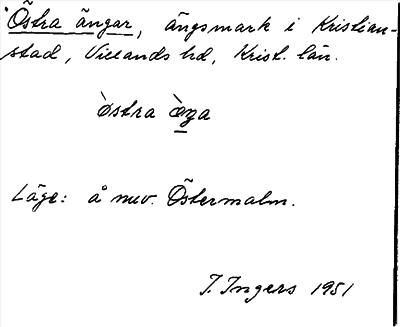 Östra ängar, ängsmark i Kristian-
stad, Villands hd, Krist. län.
östra
Läge: å nuv. Östermalm.
I. Ingers 1951